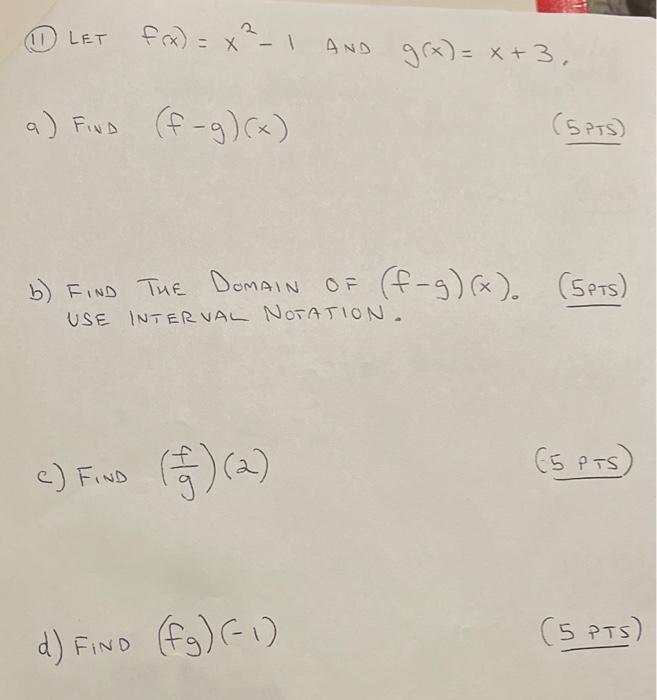 11 LET f(x) = x² - 1 AND g(x) = x + 3.
a) FIND (f - g)(x) (5 PTS)
b) FIND THE DOMAIN OF (f - g)(x). (5 PTS)
USE INTERVAL NOTATION.
c) FIND (f/g)(2) (5 PTS)
d) FIND (fg)(-1) (5 PTS)